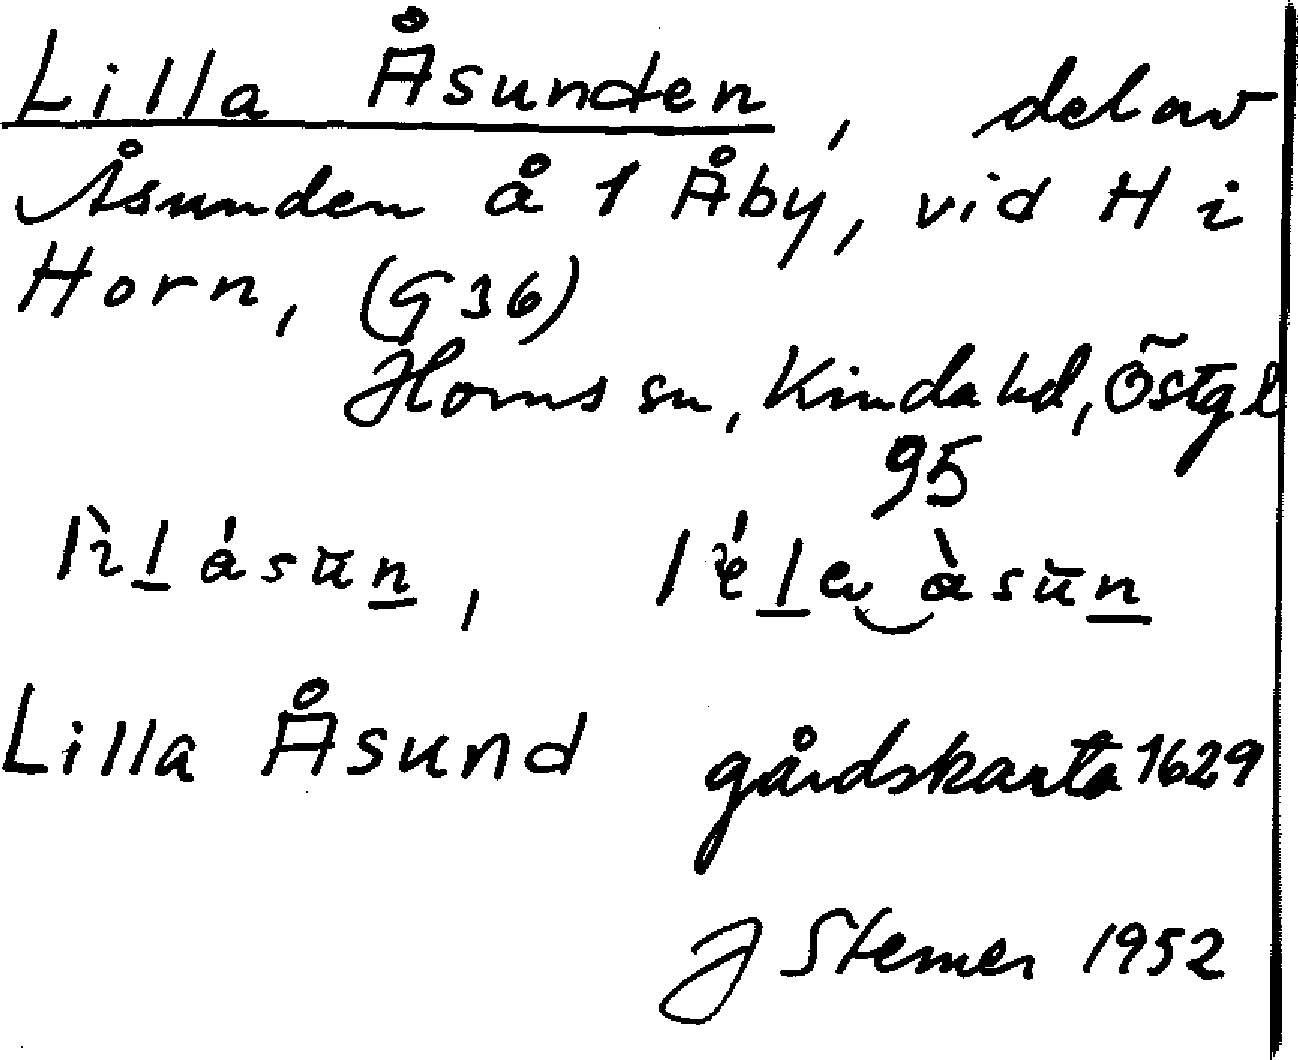 Lilla Åsunden, del av
Åsunden å 1 Åby, vid H i
Horn, (G36)
Horns sn, Kinda hd, Östgl
95
Lilla Åsund gårdskarta 1629
J Sterner 1952